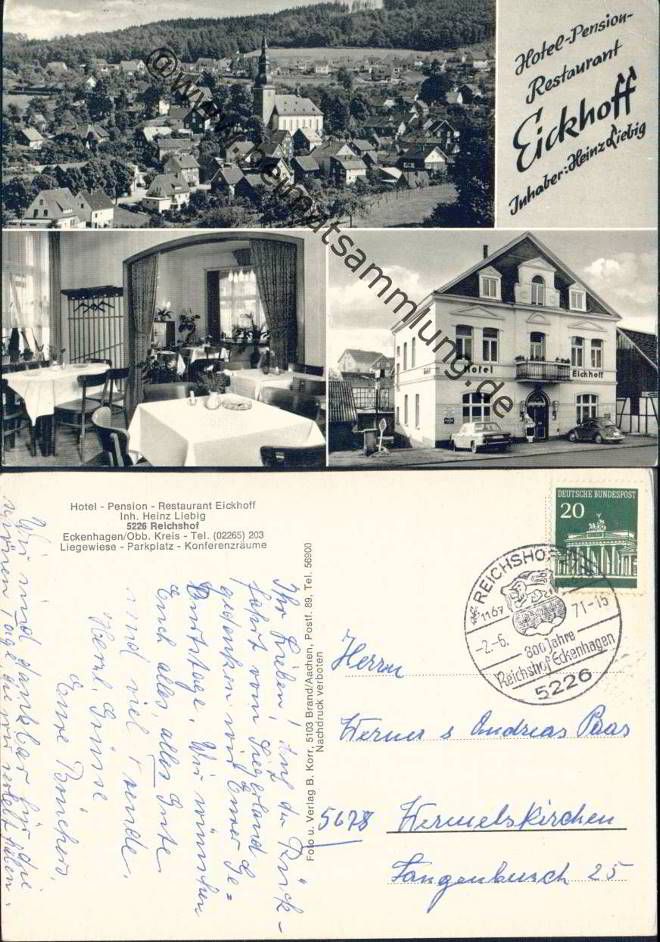 Hotel-Pension-
Restaurant
Eickhoff
Inhaber: Heinz Liebig
©www.heimatsammlung.de
Hotel
Eickhoff
Hotel - Pension - Restaurant Eickhoff
Inh. Heinz Liebig
5226 Reichshof
Eckenhagen/Obb. Kreis - Tel. (02265) 203
Liegewiese - Parkplatz - Konferenzräume
DEUTSCHE BUNDESPOST
20
REICHSHOF
1167
-2.-6.
71-15
800 Jahre
Reichshof Eckenhagen
5226
Foto u. Verlag B. Korr, 5103 Brand/Aachen, Postf. 89, Tel. 56900
Nachdruck verboten
Ihr Lieben! Auf der Rück-
fahrt vom Siegerland
gedenken wir Eurer Ge-
burtstage. Wir wünschen
Euch alles alles Gute
und viel Freude.
Herzl. Grüsse
Eure
Wir sind dankbar für die
schönen Tage die wir verlebt haben.
Herrn
Werner & Andreas Paas
5678 Wermelskirchen
Langenbusch 25